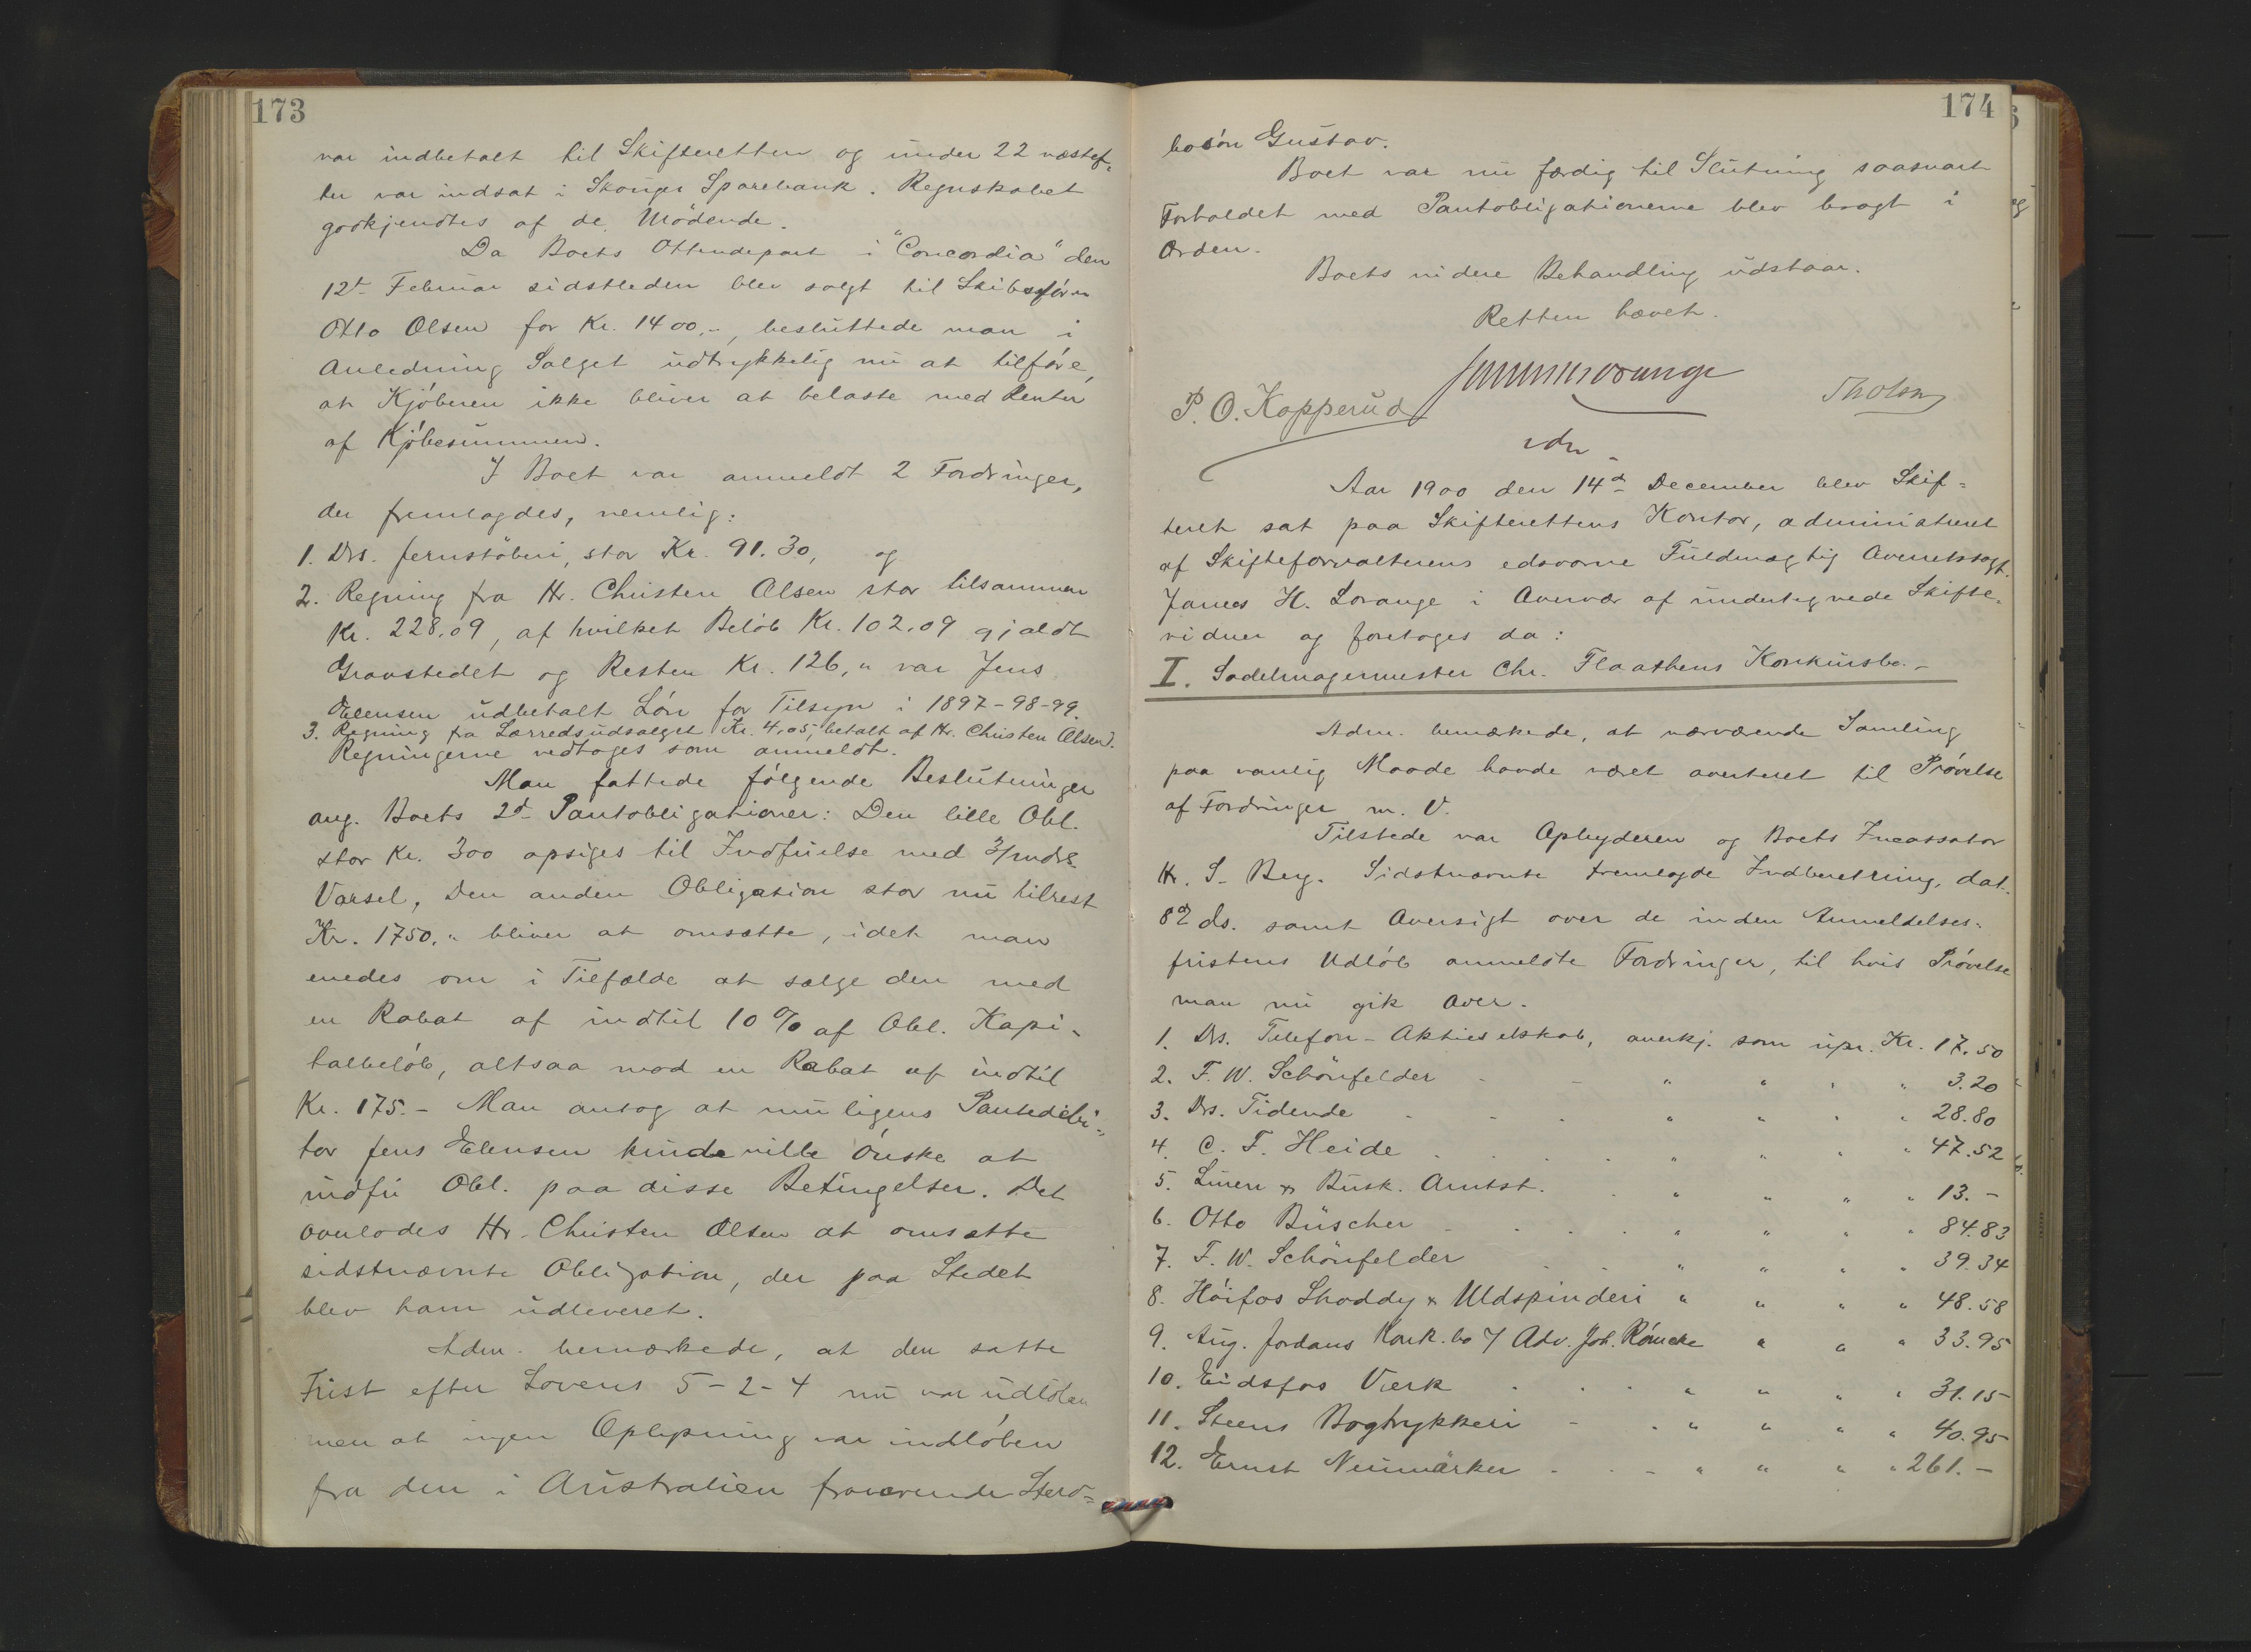 173
var indbetalt til Skifteretten og under 22 næstef-
ter var indsat i Skouger Sparebank. Regnskabet
godkjendtes af de Mödende.
Da Boets Ottendepart i "Concordia" den
12te Februar sidstleden blev solgt til Skibsförer
Otto Olsen for Kr. 1400.-, besluttede man i
Anledning Salget udtrykkelig nu at tilföre,
at Kjöberen ikke bliver at belaste med Renter
af Kjöbesummen.
I Boet var anmeldt 2 Fordringer,
der fremlagdes, nemlig:
1. Drs. Jernstöberi, stor Kr. 91.30, og
2. Regning fra Hr. Christen Olsen stor tilsammen
Kr. 228.09, af hvilket Belöb Kr. 102.09 gjaldt
Gravstedet og Resten Kr. 126,- var Jens
Ellensen udbetalt Lön for Tilsyn i 1897-98-99.
3. Regning fra Lærredsudsalget Kr. 4.05, betalt af Hr. Christen Olsen.
Regningerne vedtoges som anmeldt.
Man fattede fölgende Beslutninger
ang. Boets 2de Pantobligationer: Den lille Obl.
stor Kr. 300 opsiges til Indfrielse med 3/mdrs
Varsel, Den anden Obligation stor nu tilrest
Kr. 1750.- bliver at omsætte, idet man
enedes om i Tilfælde at sælge den med
en Rabat af indtil 10 % af Obl. Kapi-
talbelöb, altsaa mod en Rabat af indtil
Kr. 175.- Man antog at muligens Pantedebi-
tor Jens Ellensen kunde ville önske at
indfri Obl. paa disse Betingelser. Det
overlodes Hr. Christen Olsen at omsætte
sidstnævnte Obligation, der paa Stedet
blev ham udleveret.
Adm. bemærkede, at den satte
Frist efter Lovens 5-2-4 nu var udlöben
men at ingen Oplysning var indlöben
fra den i Australien fraværende Sterv-
174
bosön Gustav.
Boet var nu færdig til Slutning saasnart
Forholdet med Pantobligationerne blev bragt i
Orden.
Boets videre Behandling udstaar.
Retten hævet.
P. O. Kopperud
vdn
Aar 1900 den 14de December blev Skif-
teret sat paa Skifterettens Kontor, administreret
af Skifteforvalterens edsvorne Fuldmægtig Overretssagf.
James H. Lorange i Overvær af undertegnede Skifte-
vidner og foretoges da:
I. Sadelmagermester Chr. Flaathens Konkursbo.-
Adm. bemærkede, at nærværende Samling
paa vanlig Maade havde været averteret til Prövelse
af Fordringer m. V.
Tilstede var Opbyderen og Boets Incassator
Hr. S. Berg. Sidstnævnte fremlagde Indberetning, dat.
8de ds. samt Oversigt over de inden Anmeldelses-
fristens Udlöb anmeldte Fordringer, til hvis Prövelse
man nu gik over.
1. Drs. Telefon-Aktieselskab, anerkj. som upr. Kr. 17.50
2. F. W. Schönfelder " " " " 3.20
3. Drs. Tidende " " " " 28.80
4. C. F. Heide " " " " 47.52
5. & Busk. Amtst. " " " " 13.-
6. Otto Büscher " " " " 84.83
7. F. W. Schönfelder " " " " 39.34
8. Höifos Shoddy & Uldspinderi " " " " 48.58
9. Aug. Jordans Konk. bo v/ Adv. Joh. Römcke " " " 33.95
10. Eidsfos Værk " " " " 31.15
11. Steens Bogtrykkeri " " " " 40.95
12. Ernst Neumärker " " " " 261.-